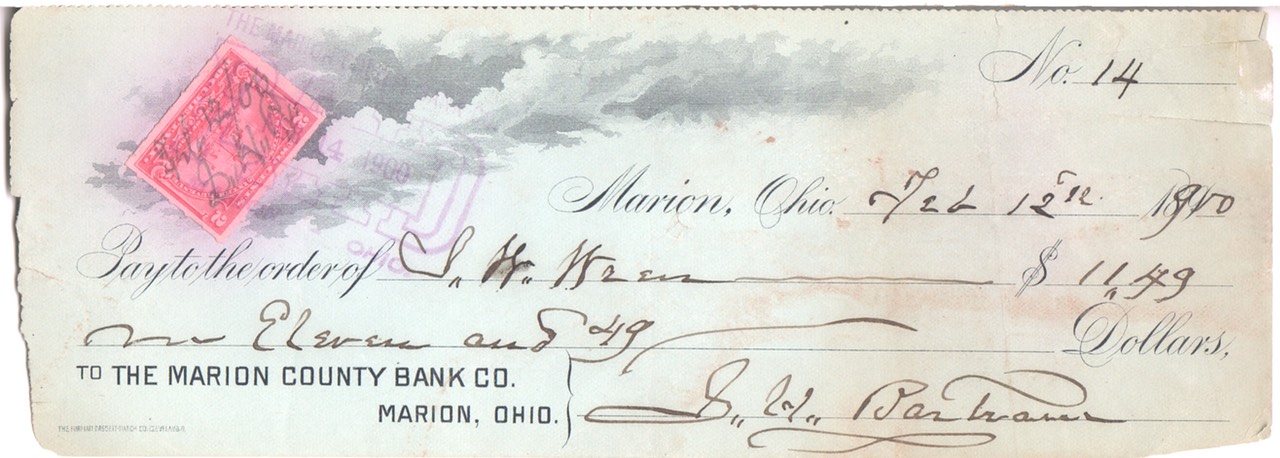 No. 14
Marion, Ohio. Feb 12th 1900
Pay to the order of S. W. Wren $ 11.49
Eleven and 49
Dollars,
TO THE MARION COUNTY BANK CO.
MARION, OHIO.
THE MARION
1900
OHIO